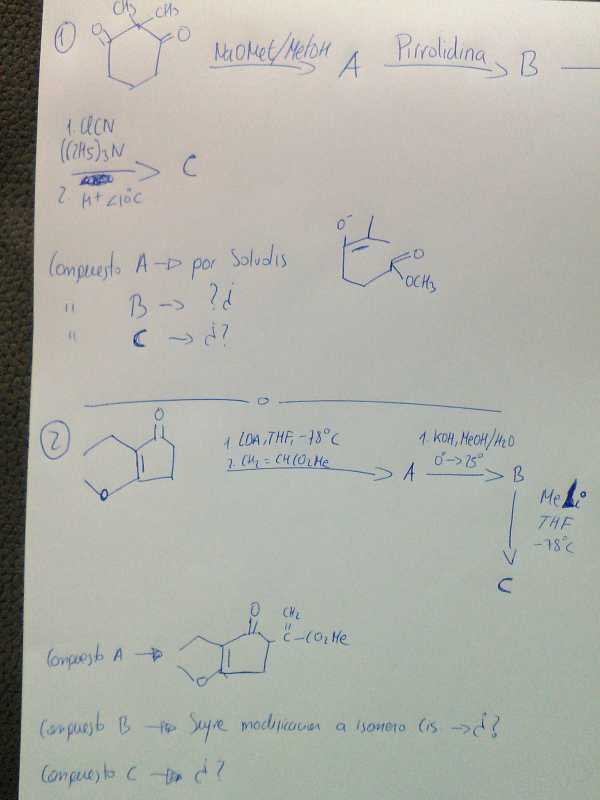 1) CH₃ CH₃
O O
NaOMet/MetOH A Pirrolidina B
1. ClCN
((2H5)3N
2. H+ <10°C C
O⁻
Compuesto A → por Soludis O
OCH₃
" B → ?¿
" C → ¿?
2 O
O
1. LDA, THF, -78°C
2. CH₂=CHCO₂Me A
1. KOH, MeOH/H₂O
0°→25° B
MeLi
THF
-78°C
C
O CH₂
Compuesto A → O C-CO₂Me
Compuesto B → Sufre modificacion a isomero Cis. → ¿?
Compuesto C → ¿?